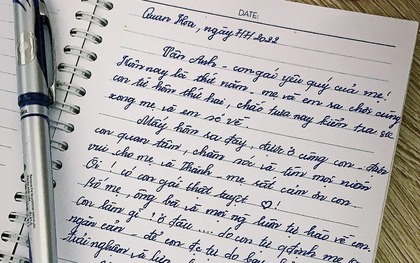 DATE:
Quan Hoa, ngày 7/7/2022
Vân Anh - con gái yêu quý của mẹ!
Hôm nay là thứ năm - mẹ và em ra chơi cùng
con từ hôm thứ hai, chắc trưa nay kiểm tra sức
xong mẹ và em sẽ về
Mấy hôm ra đây, được ở cùng con, được
con quan tâm, chăm sóc và tìm mọi nước
vui cho mẹ và Thành - mẹ rất cảm ơn con
Ôi! có con gái thật tuyệt ♡!
Bố mẹ, ông bà và mọi ng luôn tự hào về con.
Con làm gì! ở đâu... do con tự qđịnh mẹ k
ngăn cản - để con đc tự do
trải nghiệm và